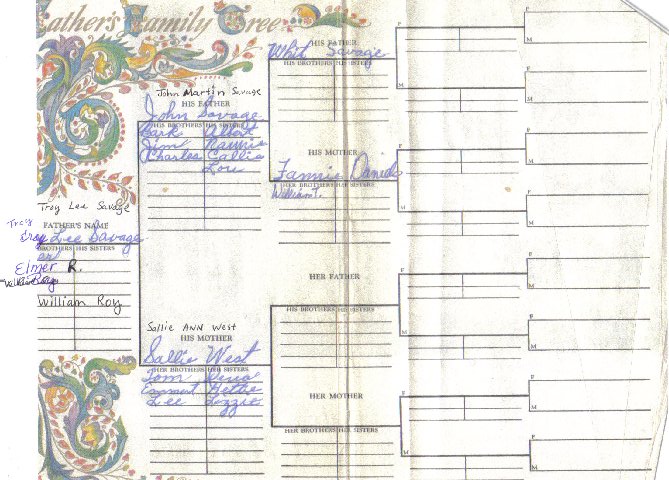 Father's Family Tree
HIS FATHER
Whit Savage
HIS BROTHERS HIS SISTERS
John Martin Savage
HIS FATHER
John Savage
HIS BROTHERS HIS SISTERS
Albert
Jim Nannie
Charles Callie
Lou
HIS MOTHER
Fannie Daniels
HER BROTHERS HER SISTERS
William T.
Troy Lee Savage
FATHER'S NAME
Troy
Troy Lee Savage
BROTHERS HIS SISTERS
Elmer R.
William Roy
HER FATHER
HIS BROTHERS HIS SISTERS
Sallie ANN West
HIS MOTHER
Sallie West
HER BROTHERS HER SISTERS
Tom
Hettie
Lee Lizzie
HER MOTHER
HER BROTHERS HER SISTERS
F
M
F
M
F
M
F
M
F
M
F
M